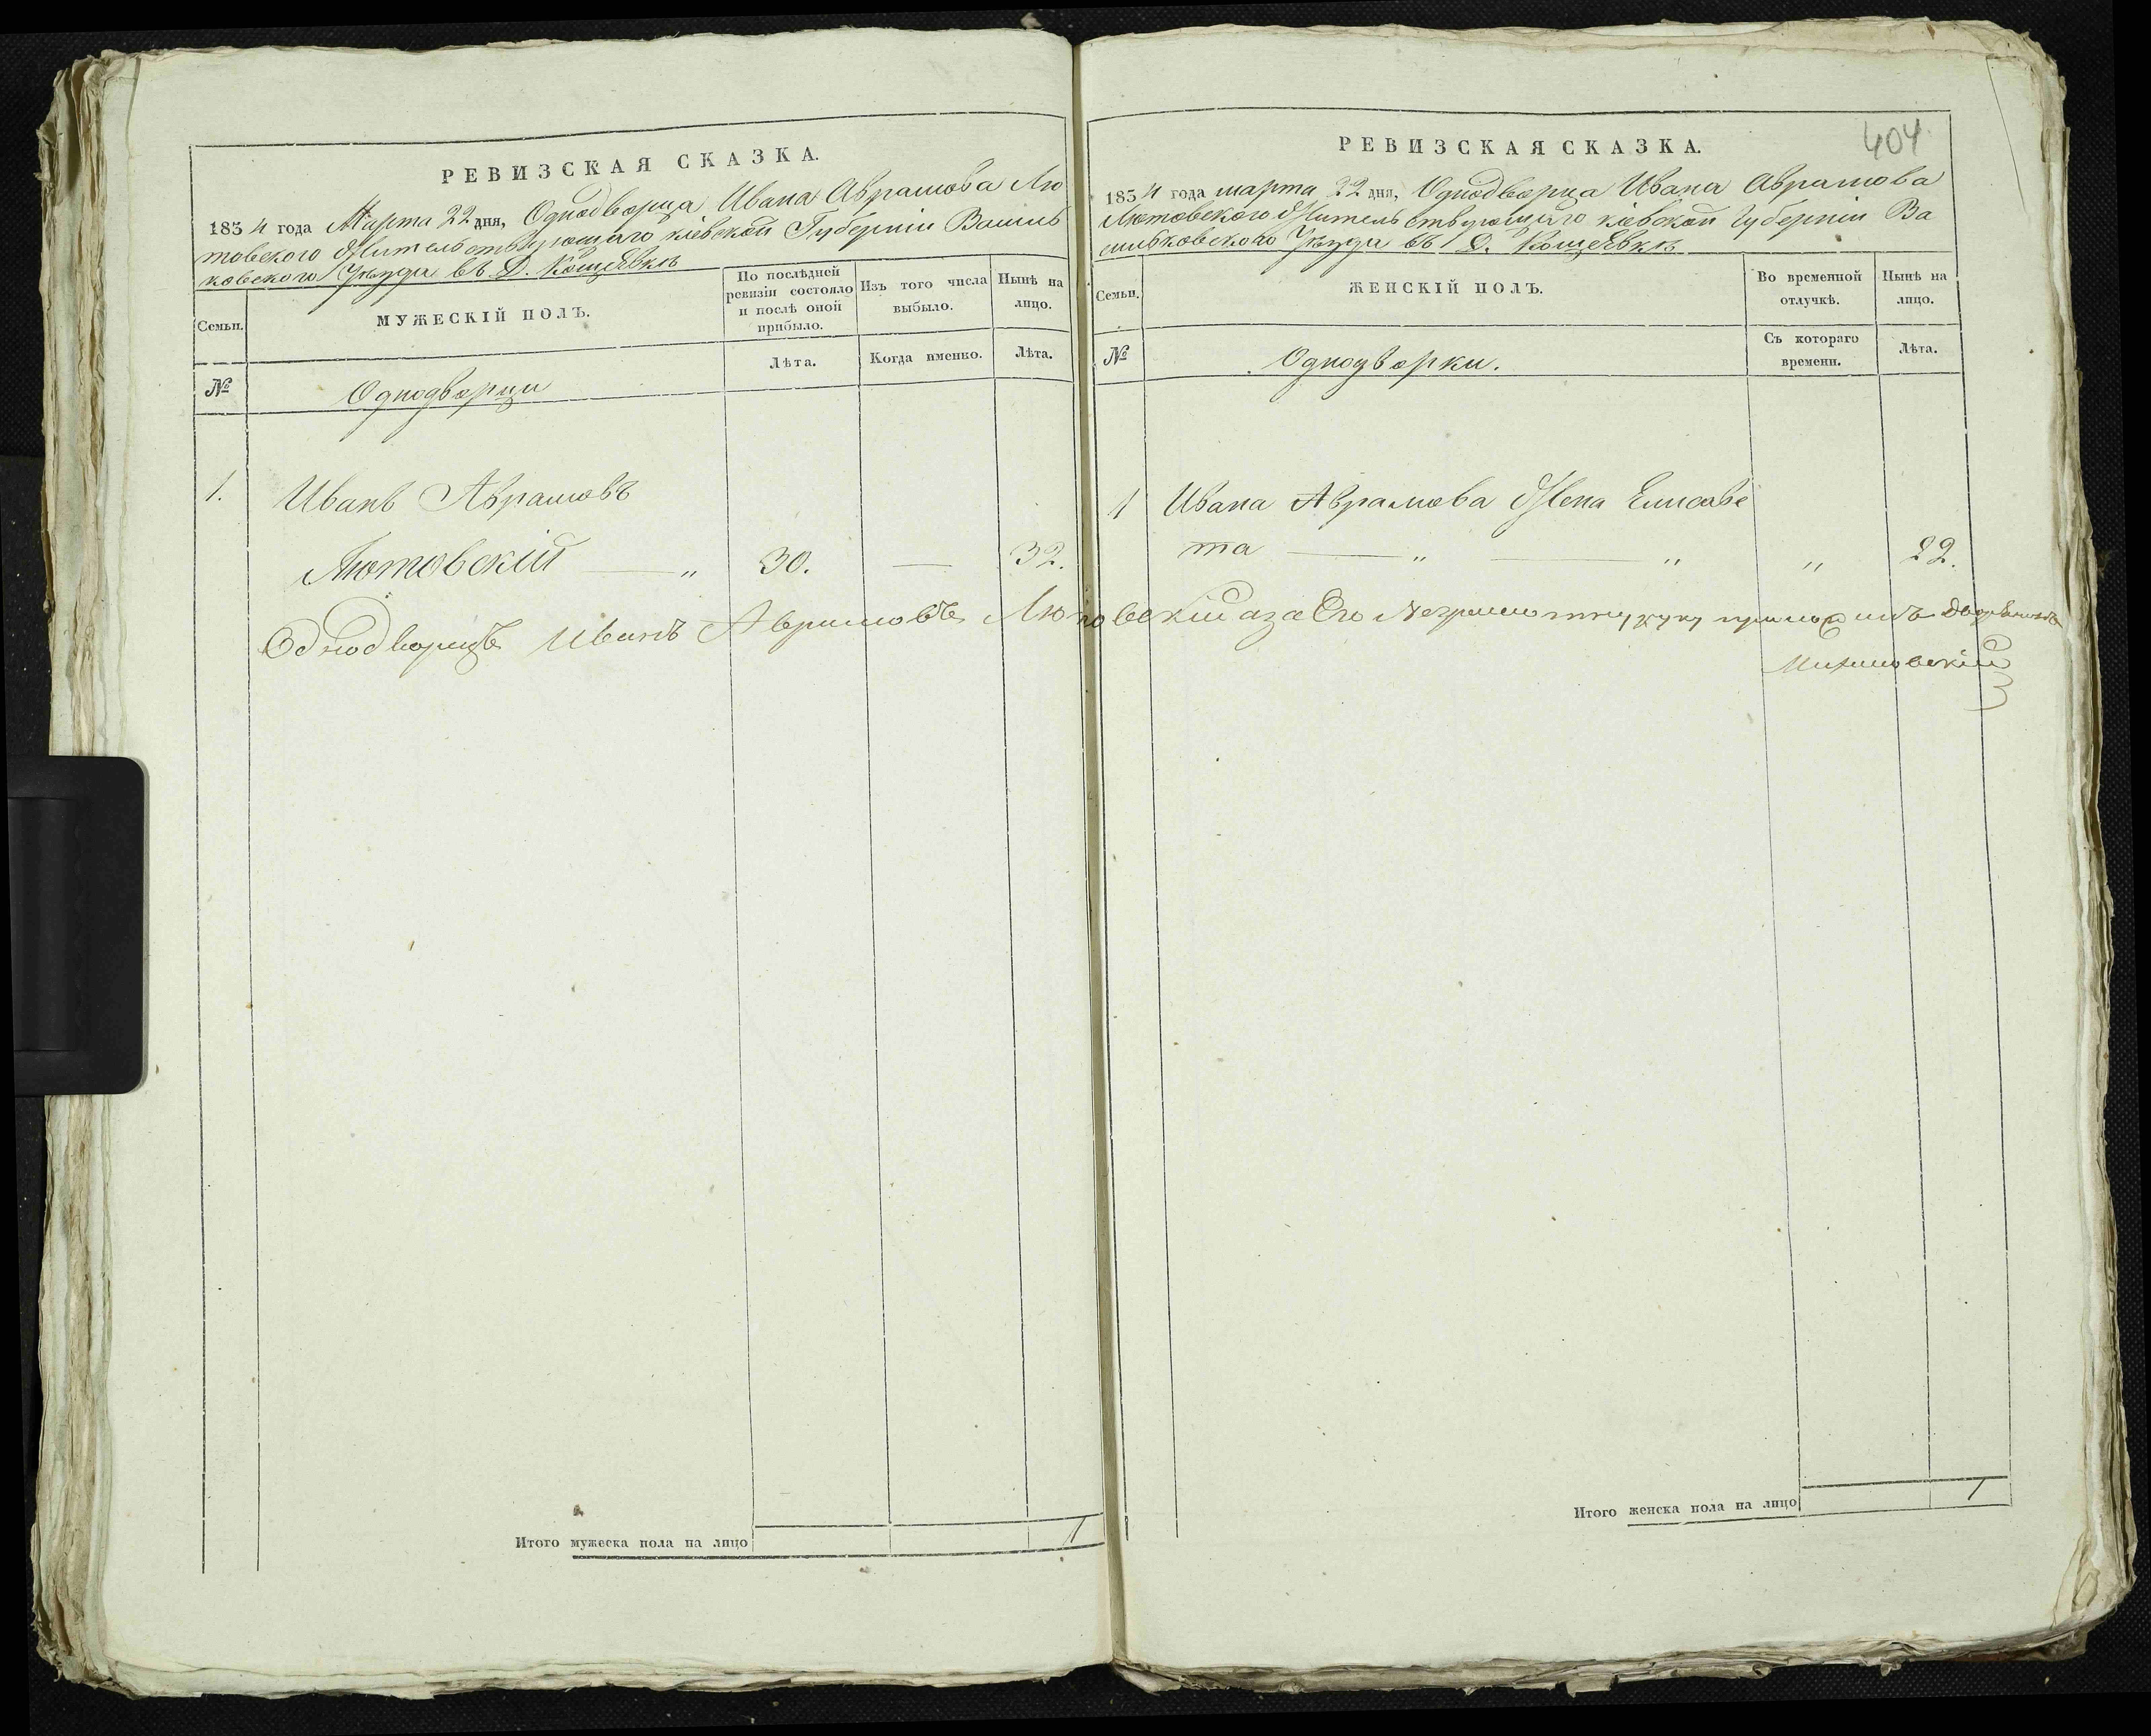 РЕВИЗСКАЯ СКАЗКА.
1834 года Марта 22 дня, Однодворца Ивана Аврамова Лю
товского Жительствующаго кіевской Губерніи Василь
ковского Уѣзда въ Д. Кощеѣвкѣ
Семьи.
МУЖЕСКІЙ ПОЛЪ.
По послѣдней
ревизіи состояло
и послѣ оной
прибыло.
Изъ того числа
выбыло.
Нынѣ на
лицо.
Лѣта.
Когда именно.
Лѣта.
№
Однодворци
1. Иванъ Аврамовъ
Лютовскій — „ 30. — 32.
Однодворецъ Иванъ Аврамовъ Лютовскій аза Его Неграмотну руку приложилъ дворянинъ
Итого мужеска пола на лицо 1
404
РЕВИЗСКАЯ СКАЗКА.
1834 года марта 22 дня, Однодворца Ивана Аврамова
Лютовского Жительствующаго кіевской Губерніи Ва
сильковского Уѣзда въ Д. Кощеѣвкѣ
Семьи.
ЖЕНСКІЙ ПОЛЪ.
Во временной
отлучкѣ.
Нынѣ на
лицо.
Съ котораго
времени.
Лѣта.
№
Однодворки.
1 Ивана Аврамова Жена Елисаве
та — „ — „ „ 22.
Итого женска пола на лицо 1